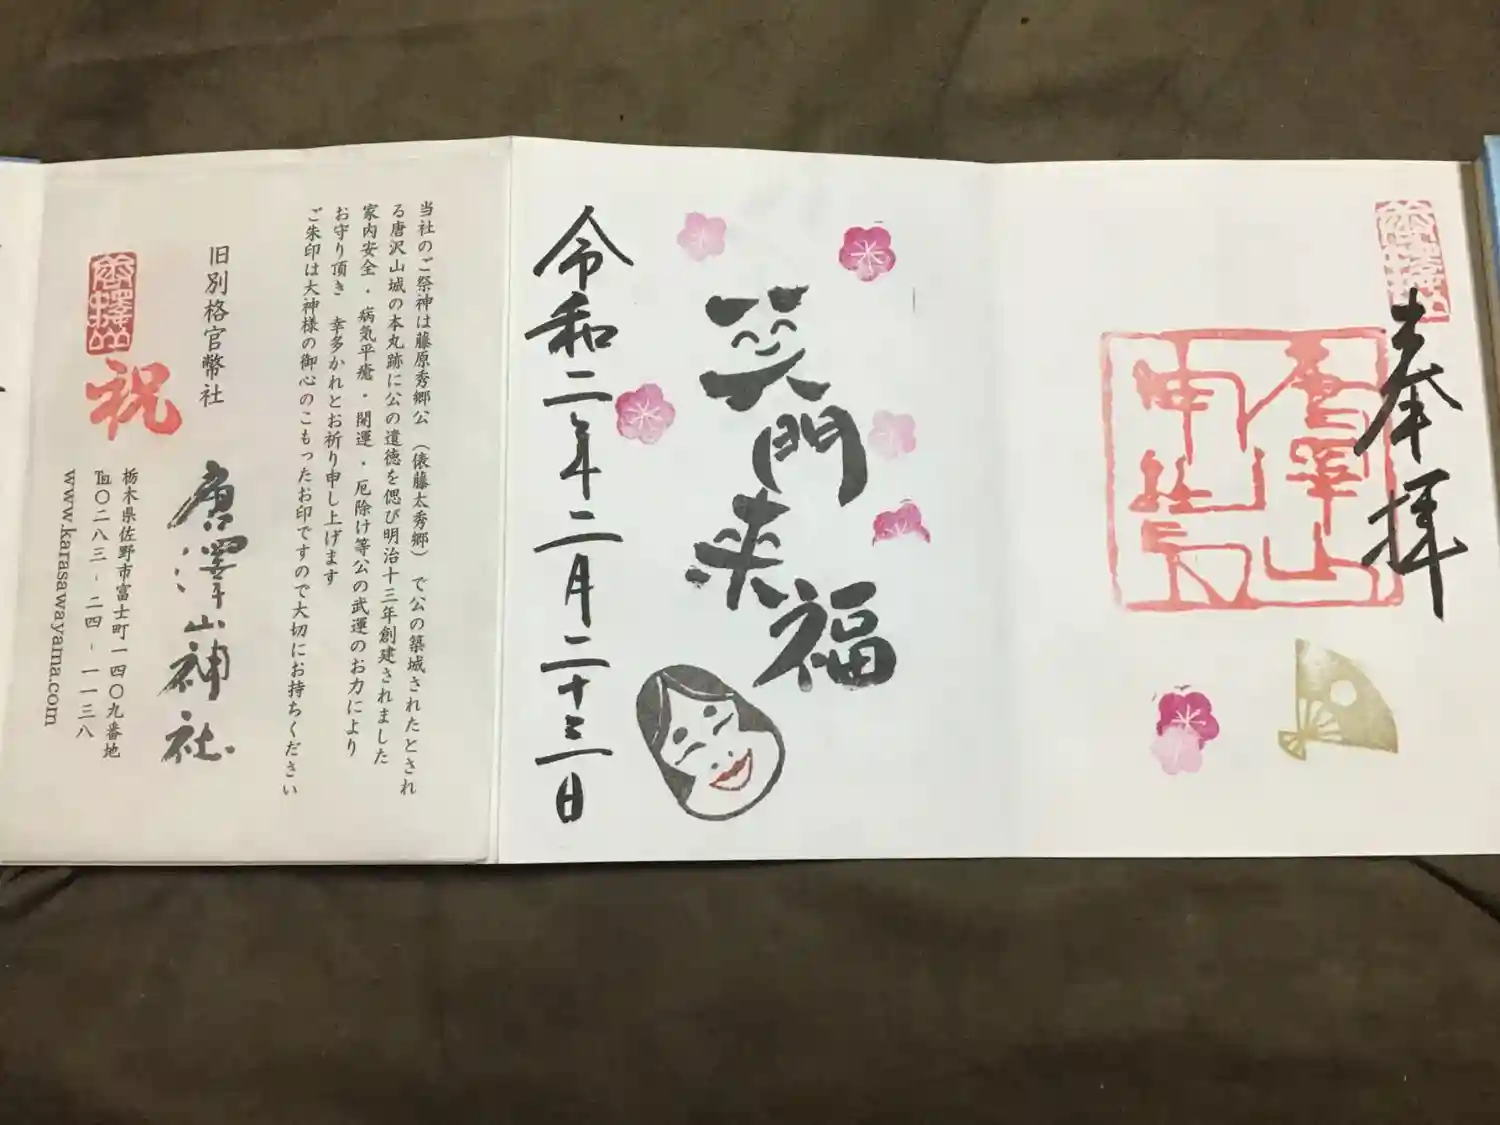 唐澤山
奉拝
唐澤山
神社
笑門来福
令和二年二月二十三日
当社のご祭神は藤原秀郷公（俵藤太秀郷）で公の築城されたとされ
る唐沢山城の本丸跡に公の遺徳を偲び明治十三年創建されました
家内安全・病気平癒・開運・厄除け等公の武運のお力により
お守り頂き 幸多かれとお祈り申し上げます
ご朱印は大神様の御心のこもったお印ですので大切にお持ちください
旧別格官幣社
唐澤山神社
栃木県佐野市富士町一四〇九番地
℡〇二八三-二四-一一三八
www.karasawayama.com
唐澤山
祝